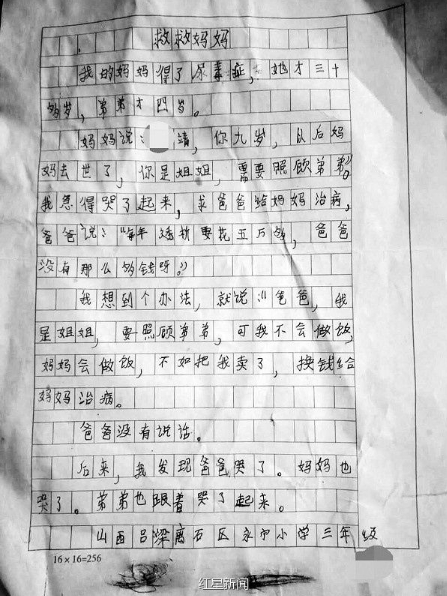 救救妈妈
我的妈妈得了尿毒症，她才三十
多岁，弟弟才四岁。
妈妈说：靖，你九岁，以后妈
妈去世了，你是姐姐，需要照顾弟弟。
我急得哭了起来，求爸爸给妈妈治病，
爸爸说：“每年透析要花五万钱，爸爸
没有那么多钱呀。”
我想到个办法，就说：“爸爸，我
是姐姐，要照顾弟弟，可我不会做饭，
妈妈会做饭，不如把我卖了，换钱给
妈妈治病。
爸爸没有说话。
后来，我发现爸爸哭了。妈妈也
哭了。弟弟也跟着哭了起来。
山西吕梁离石区永宁小学三年级
16×16=256
红星新闻